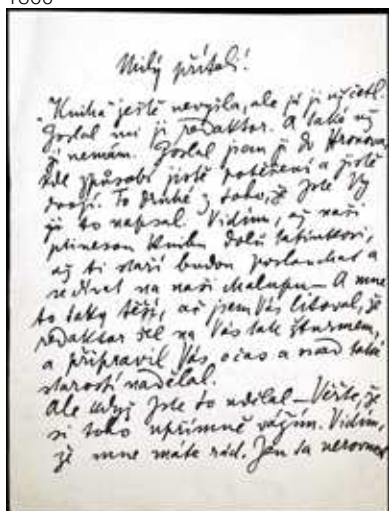 Milý příteli!
„Kniha" ještě nevyšla, ale já ji už četl.
Poslal mi ji redaktor. A také už
ji nemám. Poslal jsem ji do Hronova,
kde způsobí jistě potěšení a jistě
dvojí. To druhé z toho, že jste Vy
ji to napsal. Vidím, až naši
přinesou knihu dolů tatínkovi,
až ti staří budou poslouchat a
se dívat na naši chalupu – A mne
to taky těší, ač jsem Vás litoval, že
redaktor šel na Vás tak šturmem,
a připravil Vás o čas a snad také
starostí nadělal.
Ale když jste to udělal – Věřte, že
si toho upřímně vážím. Vidím,
že mne máte rád. Jen ta